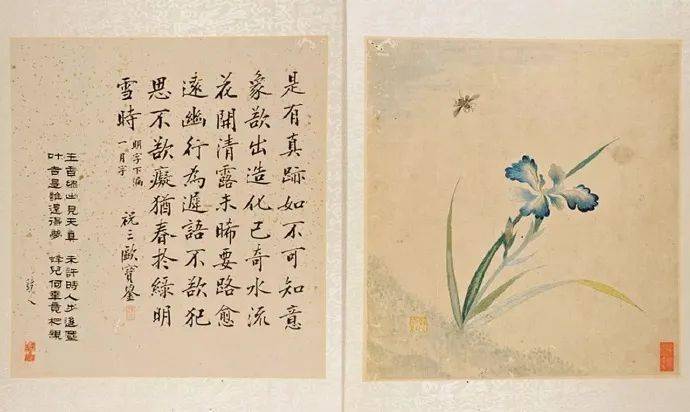 是有真跡如不可知意
象欲出造化已奇水流
花開清露未晞要路愈
遠幽行為遲語不欲犯
思不欲癡猶春於綠明
雪時
明字下漏
一月字
祝三歐寶
出見天真 未許時人步
叶香是誰還得夢 蜂兒何事竟相親